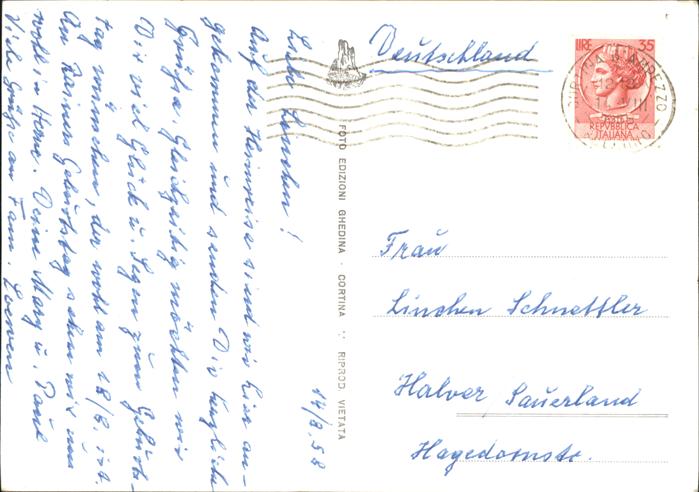 14/8.58
Liebe Linchen!
Auf der Heimreise sind wir hier an-
gekommen und senden Dir herzliche
Grüße. Gleichzeitig möchten wir
Dir viel Glück u. Segen zum Geburts-
tag wünschen, der wohl am 18/8. ist.
An Rainers Geburtstag sehen wir uns
wohl in Horne. Deine Marg u. Paul
Viele Grüße an Fam. Loewen
FOTO EDIZIONI GHEDINA - CORTINA
RIPROD. VIETATA
Deutschland
LIRE 35
REPVBBLICA
ITALIANA
Frau
Linchen Schnettler
Halver Sauerland
Hagedornstr.